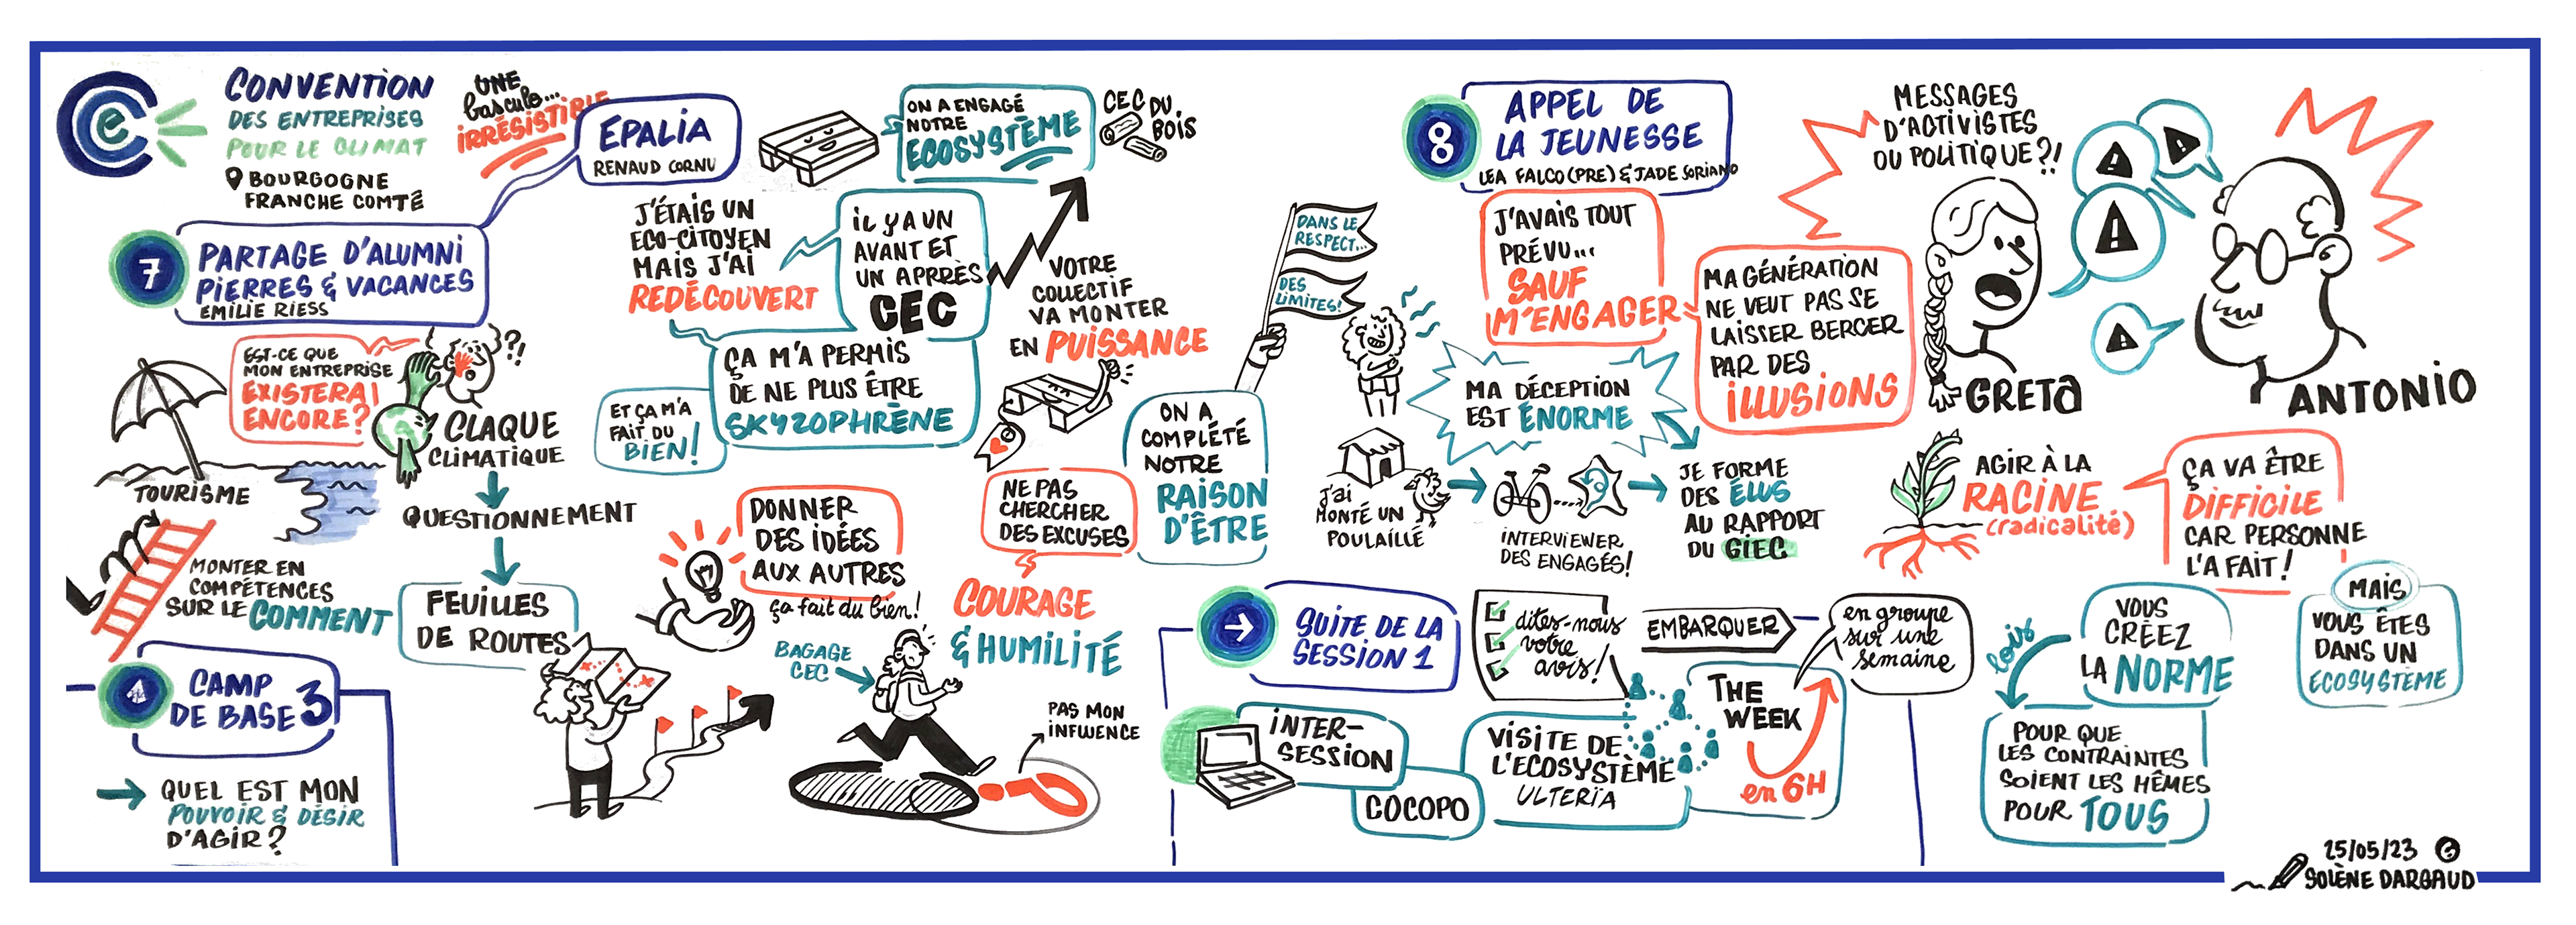 CONVENTION
DES ENTREPRISES
POUR LE CLIMAT
BOURGOGNE
FRANCHE COMTÉ
UNE
bascule...
IRRÉSISTIBLE
7
PARTAGE D'ALUMNI
PIERRES & VACANCES
EMILIE RIESS
EST-CE QUE
MON ENTREPRISE
EXISTERAI
ENCORE?
??
CLAQUE
CLIMATIQUE
TOURISME
QUESTIONNEMENT
MONTER EN
COMPÉTENCES
SUR LE COMMENT
FEUILLES
DE ROUTES
CAMP
DE BASE 3
QUEL EST MON
POUVOIR & DÉSIR
D'AGIR?
EPALIA
RENAUD CORNU
ON A ENGAGÉ
NOTRE
ECOSYSTÈME
CEC DU
BOIS
J'ÉTAIS UN
ECO-CITOYEN
MAIS J'AI
REDÉCOUVERT
IL Y A UN
AVANT ET
UN APRRÈS
CEC
VOTRE
COLLECTIF
VA MONTER
EN PUISSANCE
ÇA M'A PERMIS
DE NE PLUS ÊTRE
SKYZOPHRÈNE
ET ÇA M'A
FAIT DU
BIEN!
DONNER
DES IDÉES
AUX AUTRES
ça fait du bien!
NE PAS
CHERCHER
DES EXCUSES
COURAGE
& HUMILITÉ
BAGAGE
CEC
PAS MON
INFLUENCE
ON A
COMPLÉTÉ
NOTRE
RAISON
D'ÊTRE
DANS LE
RESPECT...
DES
LIMITES!
8
APPEL DE
LA JEUNESSE
LEA FALCO (PRE) & JADE SORIANO
J'AVAIS TOUT
PRÉVU...
SAUF
M'ENGAGER
MA GÉNÉRATION
NE VEUT PAS SE
LAISSER BERCER
PAR DES
ILLUSIONS
MA DÉCEPTION
EST ÉNORME
J'ai
MONTÉ UN
POULAILLÉ
INTERVIEWER
DES ENGAGÉS!
JE FORME
DES ÉLUS
AU RAPPORT
DU GIEC
MESSAGES
D'ACTIVISTES
OU POLITIQUE?!
GRETA
ANTONIO
AGIR À LA
RACINE
(radicalité)
ÇA VA ÊTRE
DIFFICILE
CAR PERSONNE
L'A FAIT!
MAIS
VOUS ÊTES
DANS UN
ECOSYSTÈME
VOUS
CRÉEZ
LA NORME
lois
POUR QUE
LES CONTRAINTES
SOIENT LES MÊMES
POUR TOUS
SUITE DE LA
SESSION 1
dites-nous
votre
avis!
EMBARQUER
en groupe
sur une
semaine
INTER-
SESSION
COCOPO
VISITE DE
L'ECOSYSTÈME
ULTERÏA
THE
WEEK
en 6H
25/05/23
SOLÈNE DARGAUD